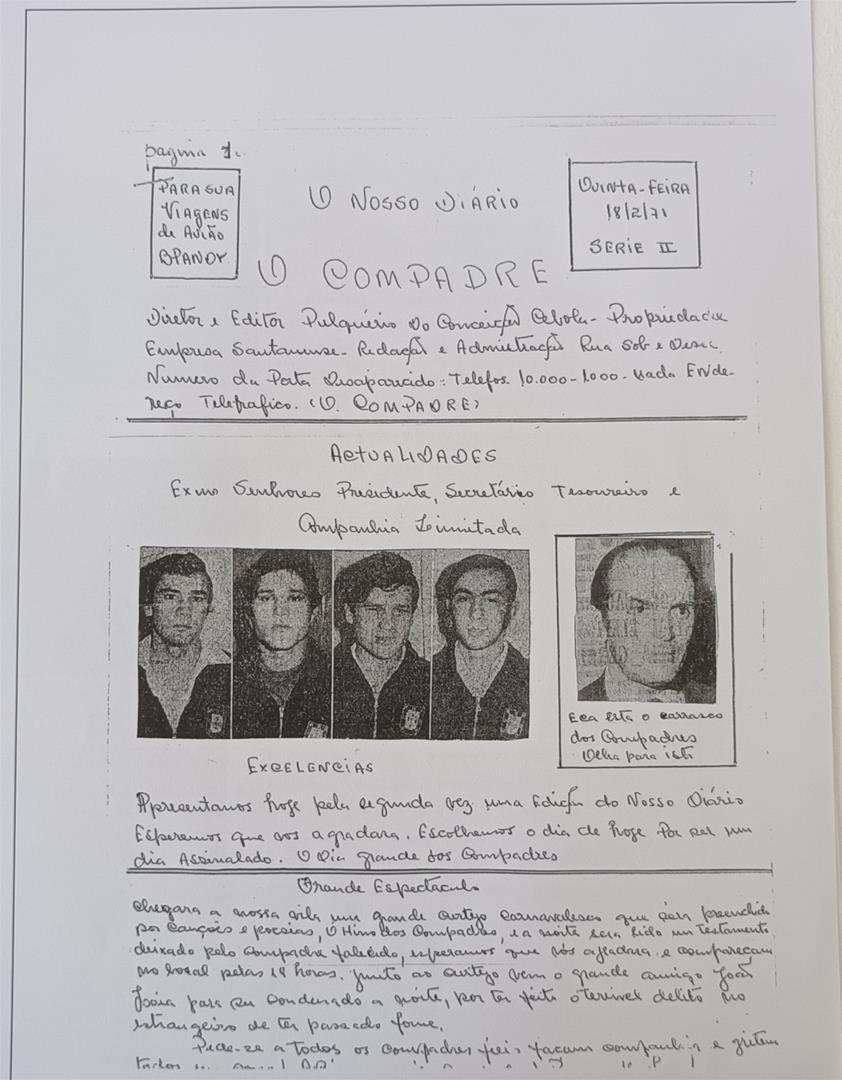 pagina 1.
PARAGUA
VIAGENS
de AVIÃO
BPANDY
O NOSSO DIÁRIO
QUINTA-FEIRA
18/2/71
SERIE II
O COMPADRE
Diretor e Editor Pulquério Do Conceição Cebola - Propriedade
Empresa Santanense - Redação e Admistração Rua Sob e Desce
Numero da Porta Desaparecido: Telefos. 10.000-1000 - Ende-
reço Telegrafico. (O. COMPADRE)
ACTUALIDADES
Exmo Senhores Presidente, Secretário Tesoureiro e
Companhia Limitada
Eca esta o carrasco
dos Compadres
Olha para isto
EXCELENCIAS
Apresentamos hoje pela segunda vez uma Edição do Nosso Diário
Esperamos que vos agradara. Escolhemos o dia de hoje Por ser um
dia Assinalado. O Dia grande dos Compadres
Grande Espectaculo
chegara a nossa vila um grande cortejo carnavalesco que sera preenchido
por canções e poesias, O Hino dos Compadres, e a noite sera lido um Testamento
deixado pelo compadre falecido, esperamos que vos agradara e compareçam
no local pelas 19 horas. junto ao cortejo vem o grande amigo João
para ser condenado a morte, por ter feito o terrivel delito no
estrangeiro de ter passado fome.
Pede-se a Todos os compadres fieis façam companhia e gritem
todos